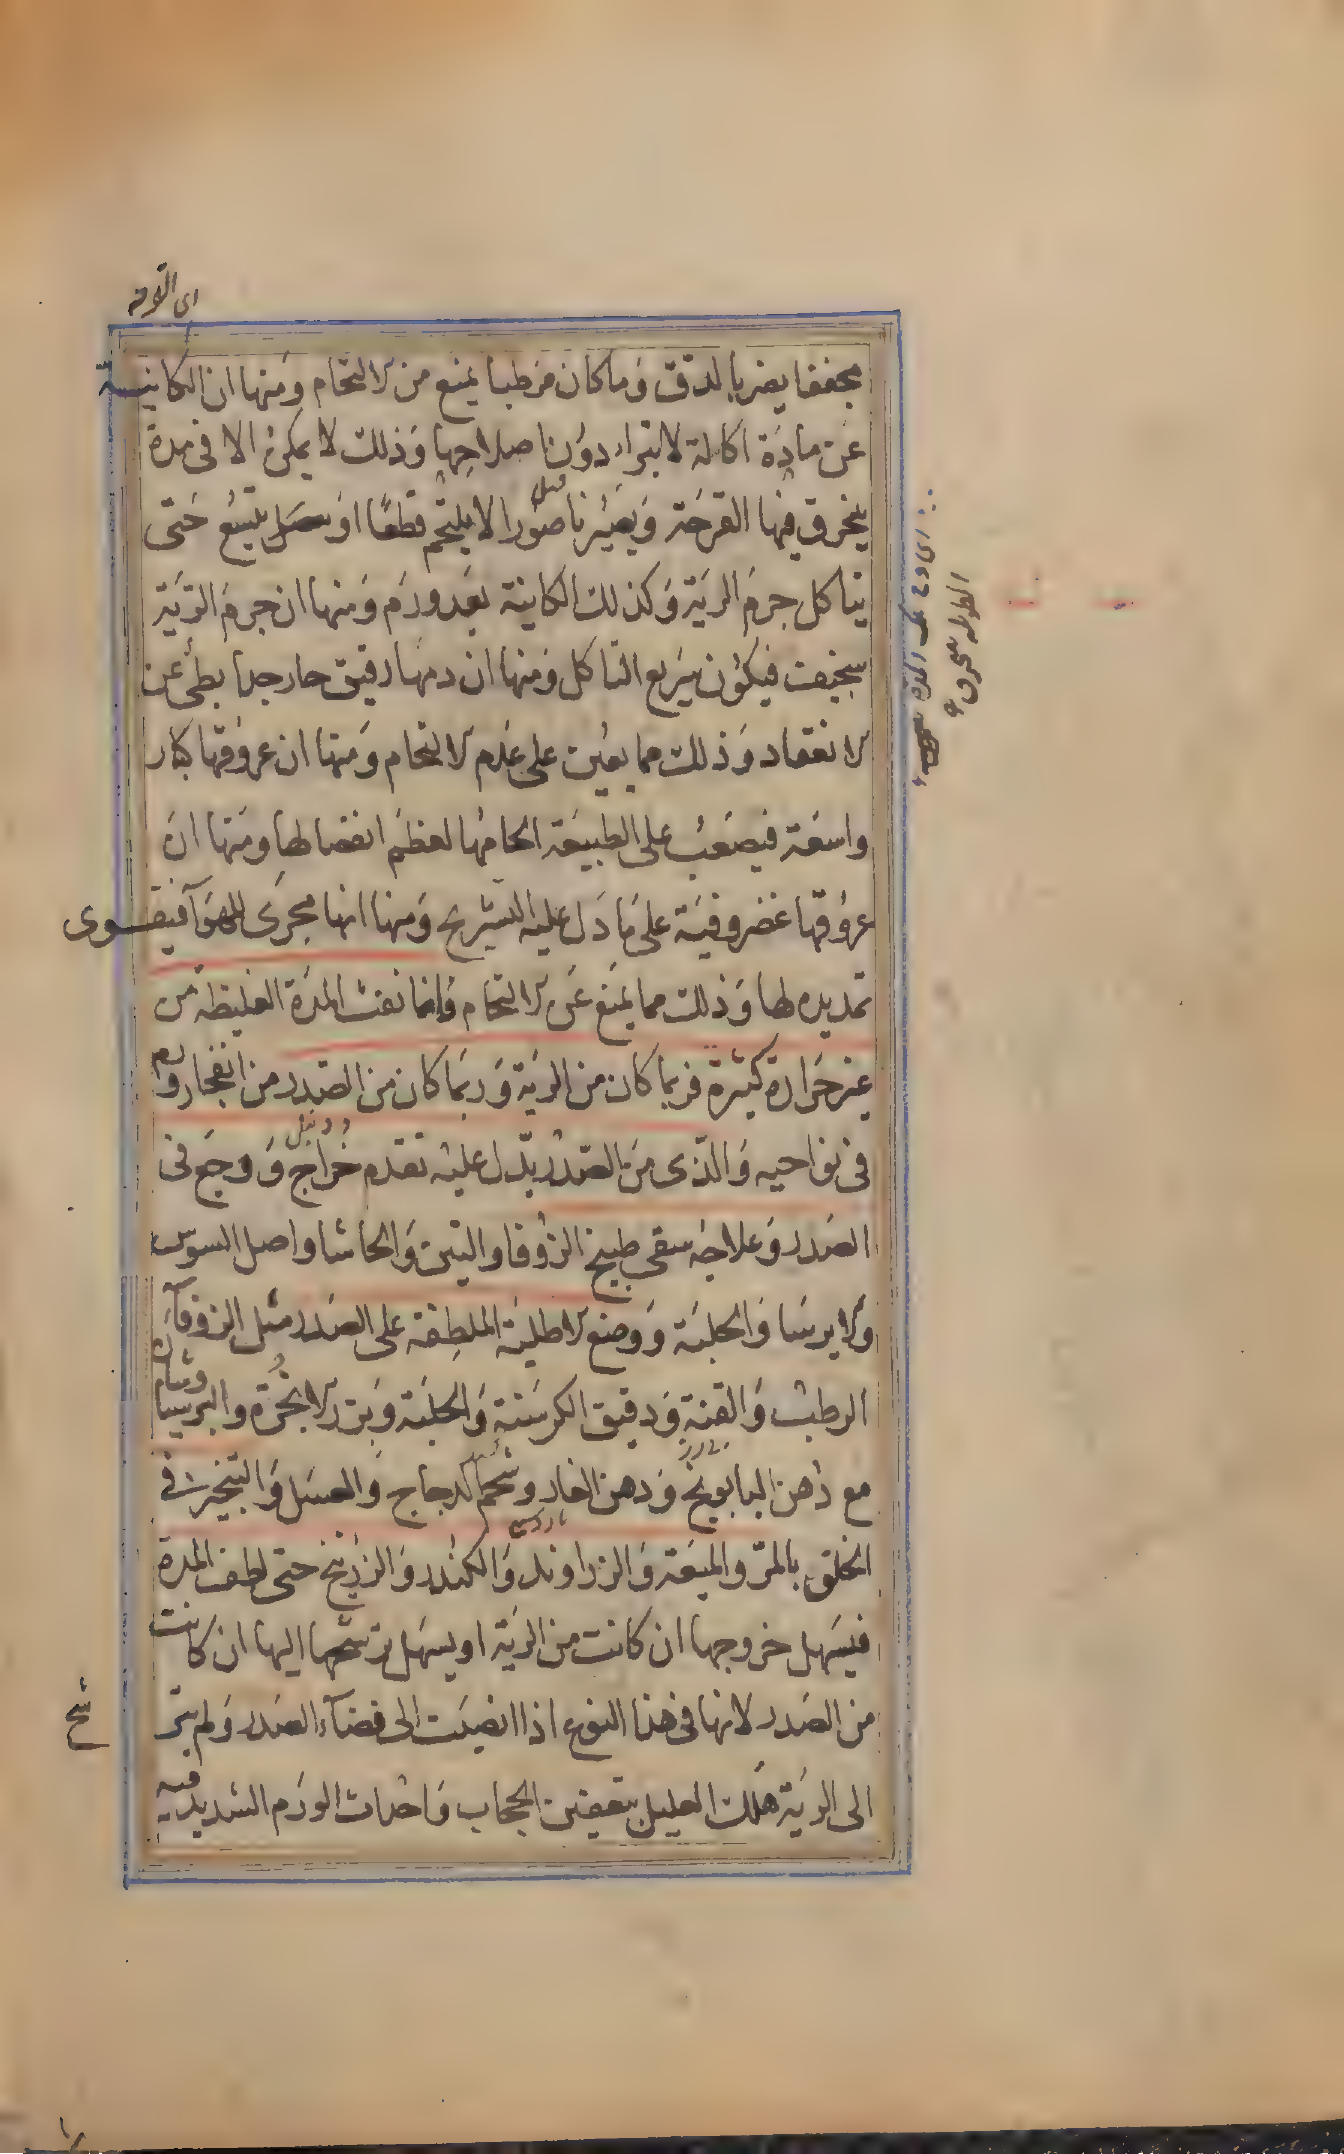 اى القرحة
مجففا يضر بالدق وما كان مرطبا يمنع من الالتحام ومنها ان الكاينة
عن مادة اكالة لا تبراء دون اصلاحها وذلك لا يمكن الا فى مدة
ينخرق فيها القرحة ويصير ناصورا لا يلتحم قطعا او يتسع حتى
يتاكل جرم الرية وكذلك الكاينة بعد ورم ومنها ان جرم الرية
سخيف فيكون سريع التاكل ومنها ان دمها رقيق حار جدا بطئ عن
الانعقاد وذلك مما يعين على عدم الالتحام ومنها ان عروقها كبار
واسعة فيصعب على الطبيعة الحامها لعظم انفصالها ومنها ان
عروقها غضروفية على ما دل عليه التشريح ومنها انها مجرى للهوآ فيقوى
تمديده لها وذلك مما يمنع عن الالتحام وانما نفث المدة الغليظة من
غير حرارة كثيرة فربما كان من الرية وربما كان من الصدر من انفجار ورم
فى نواحيه والذى من الصدر يدل عليه تقدم خراج ووجع فى
الصدر وعلاجه سقى طبيخ الزوفا والتين والحاشا واصل السوس
والايرسا والحلبة ووضع الاطلية الملطفة على الصدر مثل الزوفآ
الرطب والقنة ودقيق الكرسنة والحلبة وبزر الانجرة والبرسياوشان
مع دهن البابونج ودهن الغار وشحم الدجاج والعسل والتبخير فى
الحلق بالمر والميعة والزراوند والكندر والزرنيخ حتى لطف المدة
فيسهل خروجها ان كانت من الرية او يسهل ترشحها اليها ان كانت
من الصدر لانها فى هذا النوع اذا انصبت الى فضآء الصدر ولم
الى الرية هلك العليل بتعفين الحجاب واحداث الورم الشديد فيه